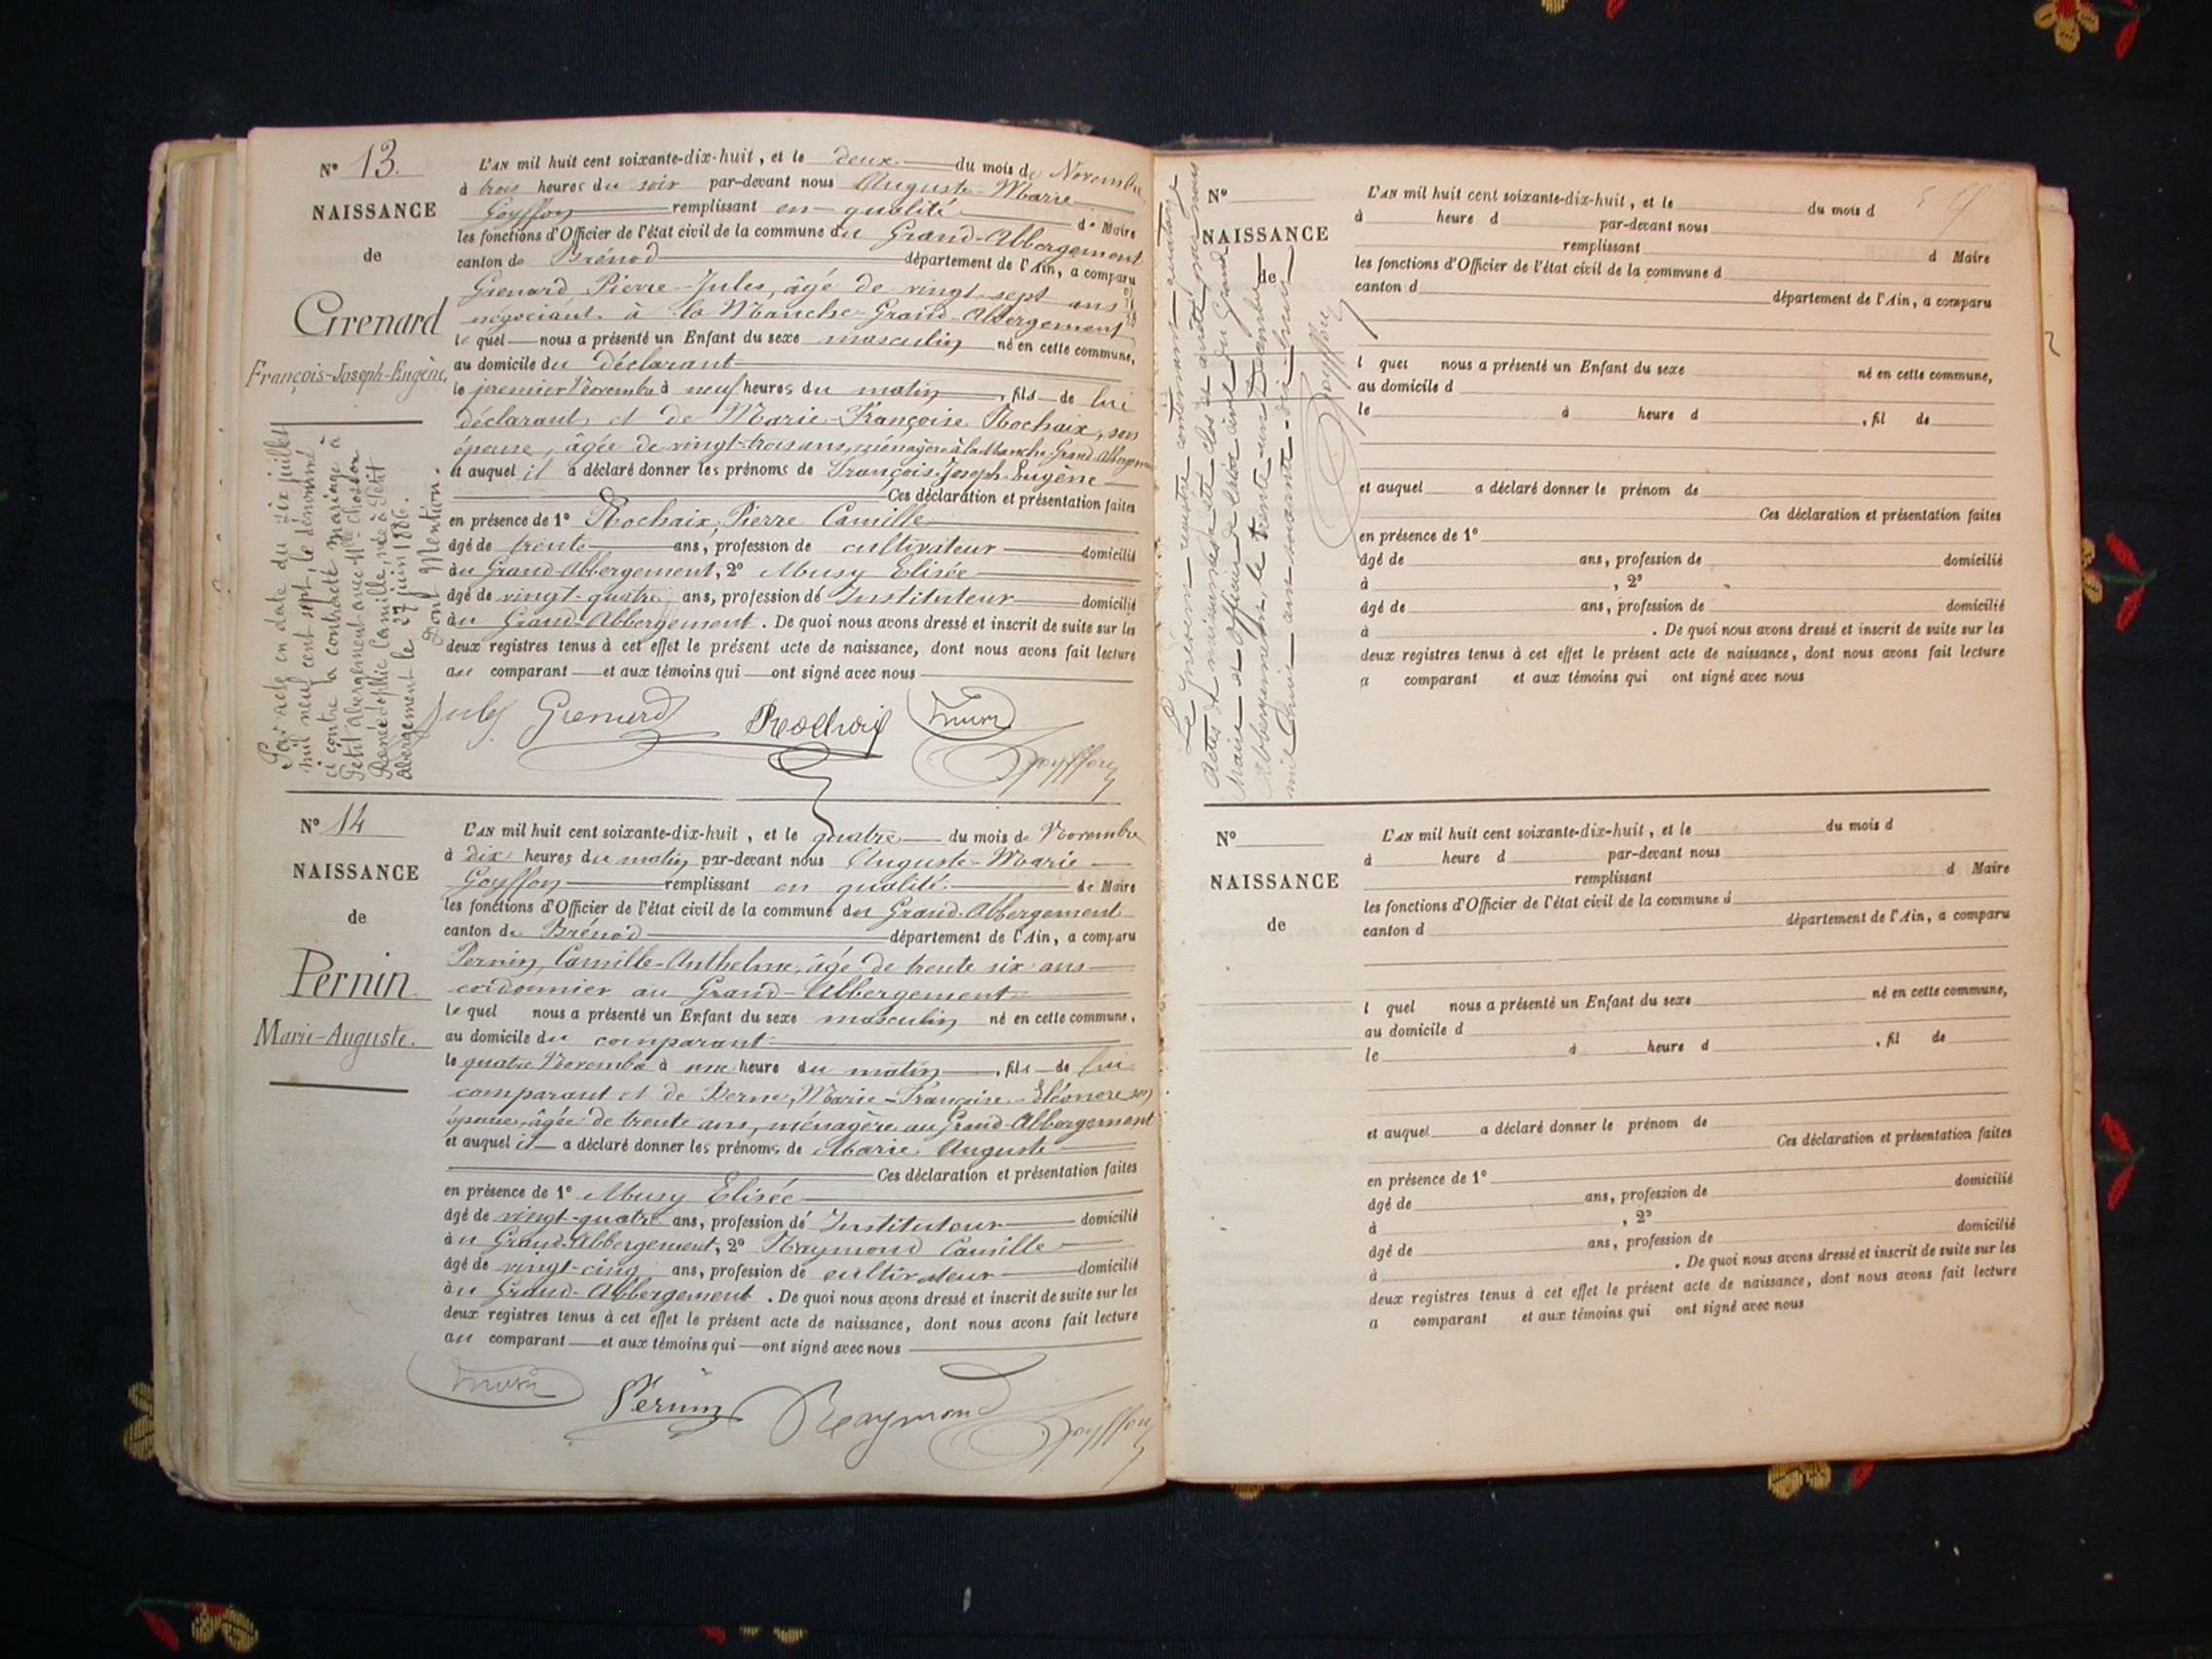 N° 13.
NAISSANCE
de
Grenard
François-Joseph-Eugène,
L'AN mil huit cent soixante-dix-huit, et le deux du mois de Novembre
à trois heures du soir par-devant nous Auguste-Marie
Goyffon remplissant en qualité de Maire
les fonctions d'Officier de l'état civil de la commune du Grand-Abbergement
canton de Brénod département de l'Ain, a comparu
Grenard Pierre-Jules, âgé de vingt-sept ans
négociant à la Manche-Grand-Abbergement
lequel nous a présenté un Enfant du sexe masculin né en cette commune,
au domicile du déclarant
le premier Novembre à neuf heures du matin, fils de lui
déclarant et de Marie-Françoise Rochaix, son
épouse, âgée de vingt-trois ans, ménagère à la Manche Grand Abbergement
et auquel il a déclaré donner les prénoms de François-Joseph-Eugène
Ces déclaration et présentation faites
en présence de 1° Rochaix, Pierre Camille
âgé de trente ans, profession de cultivateur domicilié
au Grand-Abbergement, 2° Musy Elisée
âgé de vingt-quatre ans, profession de Instituteur domicilié
au Grand-Abbergement. De quoi nous avons dressé et inscrit de suite sur les
deux registres tenus à cet effet le présent acte de naissance, dont nous avons fait lecture
au comparant et aux témoins qui ont signé avec nous
Par acte en date du dix juillet
mil neuf cent sept, le dénommé
ci contre a contracté mariage à
Petit Abergement avec Mlle Chosson
Renée Sophie Camille, née à Petit
Abergement le 27 juin 1886.
Dont Mention.
Jules Grenard Rochaix Musy
Goyffon
N° 14
NAISSANCE
de
Pernin
Marie-Auguste.
L'AN mil huit cent soixante-dix-huit, et le quatre du mois de Novembre
à dix heures du matin par-devant nous Auguste-Marie
Goyffon remplissant en qualité de Maire
les fonctions d'Officier de l'état civil de la commune du Grand-Abbergement
canton de Brénod département de l'Ain, a comparu
Pernin, Camille-Anthelme, âgé de trente six ans
cordonnier au Grand-Abbergement
lequel nous a présenté un Enfant du sexe masculin né en cette commune,
au domicile du comparant
le quatre Novembre à une heure du matin, fils de lui
comparant et de Marie-Françoise-Eléonore son
épouse, âgée de trente ans, ménagère au Grand-Abbergement
et auquel il a déclaré donner les prénoms de Marie Auguste
Ces déclaration et présentation faites
en présence de 1° Musy Elisée
âgé de vingt-quatre ans, profession de Instituteur domicilié
au Grand-Abbergement, 2° Raymond Camille
âgé de vingt-cinq ans, profession de cultivateur domicilié
au Grand-Abbergement. De quoi nous avons dressé et inscrit de suite sur les
deux registres tenus à cet effet le présent acte de naissance, dont nous avons fait lecture
au comparant et aux témoins qui ont signé avec nous
Musy Pernin Raymond Goyffon
Le présent registre contenant quatorze
actes de naissances a été clos et arrêté par nous
Maire et Officier de l'état civil du Grand
Abbergement, le trente-un Décembre
mil huit cent soixante-dix-huit
Goyffon
N°
NAISSANCE
de
L'AN mil huit cent soixante-dix-huit, et le du mois d
à heure d par-devant nous
remplissant d Maire
les fonctions d'Officier de l'état civil de la commune d
canton d département de l'Ain, a comparu
l quel nous a présenté un Enfant du sexe né en cette commune,
au domicile d
le à heure d , fil de
et auquel a déclaré donner le prénom de
Ces déclaration et présentation faites
en présence de 1°
âgé de ans, profession de domicilié
à , 2°
âgé de ans, profession de domicilié
à . De quoi nous avons dressé et inscrit de suite sur les
deux registres tenus à cet effet le présent acte de naissance, dont nous avons fait lecture
a comparant et aux témoins qui ont signé avec nous
N°
NAISSANCE
de
L'AN mil huit cent soixante-dix-huit, et le du mois d
à heure d par-devant nous
remplissant d Maire
les fonctions d'Officier de l'état civil de la commune d
canton d département de l'Ain, a comparu
l quel nous a présenté un Enfant du sexe né en cette commune,
au domicile d
le à heure d , fil de
et auquel a déclaré donner le prénom de
Ces déclaration et présentation faites
en présence de 1°
âgé de ans, profession de domicilié
à , 2°
âgé de ans, profession de domicilié
à . De quoi nous avons dressé et inscrit de suite sur les
deux registres tenus à cet effet le présent acte de naissance, dont nous avons fait lecture
a comparant et aux témoins qui ont signé avec nous